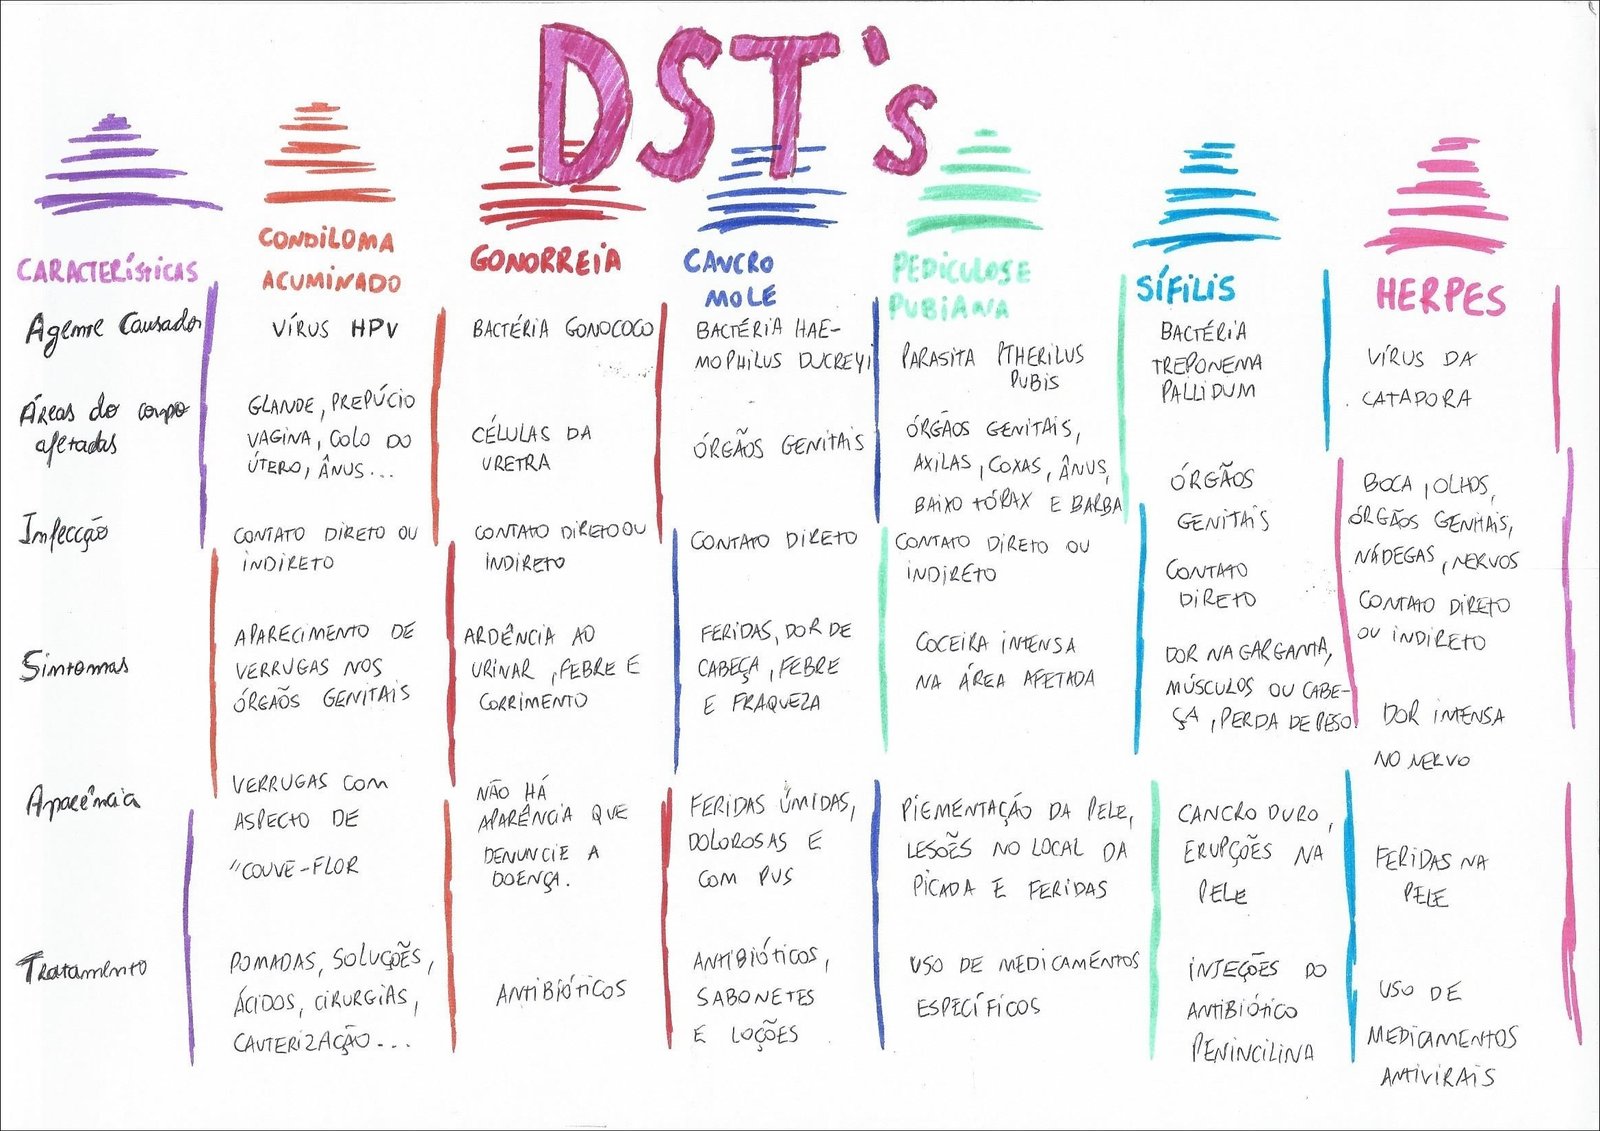 DST's
CARACTERÍSTICAS
Agente Causador
Áreas do corpo
afetadas
Infecção
Sintomas
Aparência
Tratamento
CONDILOMA
ACUMINADO
VÍRUS HPV
GLANDE, PREPÚCIO
VAGINA, COLO DO
ÚTERO, ÂNUS...
CONTATO DIRETO OU
INDIRETO
APARECIMENTO DE
VERRUGAS NOS
ÓRGAÕS GENITAIS
VERRUGAS COM
ASPECTO DE
"COUVE-FLOR
POMADAS, SOLUÇÕES,
ÁCIDOS, CIRURGIAS,
CAUTERIZAÇÃO...
GONORREIA
BACTÉRIA GONOCOCO
CÉLULAS DA
URETRA
CONTATO DIRETO OU
INDIRETO
ARDÊNCIA AO
URINAR, FEBRE E
CORRIMENTO
NÃO HÁ
APARÊNCIA QUE
DENUNCIE A
DOENÇA.
ANTIBIÓTICOS
CANCRO
MOLE
BACTÉRIA HAE-
MOPHILUS DUCREYI
ÓRGÃOS GENITAIS
CONTATO DIRETO
FERIDAS, DOR DE
CABEÇA, FEBRE
E FRAQUEZA
FERIDAS ÚMIDAS,
DOLOROSAS E
COM PUS
ANTIBIÓTICOS,
SABONETES
E LOÇÕES
PEDICULOSE
PUBIANA
PARASITA PTHERILUS
PUBIS
ÓRGÃOS GENITAIS,
AXILAS, COXAS, ÂNUS,
BAIXO TÓRAX E BARBA
CONTATO DIRETO OU
INDIRETO
COCEIRA INTENSA
NA ÁREA AFETADA
PIGMENTAÇÃO DA PELE,
LESOÊS NO LOCAL DA
PICADA E FERIDAS
USO DE MEDICAMENTOS
ESPECÍFICOS
SÍFILIS
BACTÉRIA
TREPONEMA
PALLIDUM
ÓRGÃOS
GENITAIS
CONTATO
DIRETO
DOR NA GARGANTA,
MÚSCULOS OU CABE-
ÇA, PERDA DE PESO
CANCRO DURO,
ERUPÇÕES NA
PELE
INJEÇÕES DO
ANTIBIÓTICO
PENINCILINA
HERPES
VÍRUS DA
CATAPORA
BOCA, OLHOS,
ÓRGÃOS GENITAIS,
NÁDEGAS, NERVOS
CONTATO DIRETO
OU INDIRETO
DOR INTENSA
NO NERVO
FERIDAS NA
PELE
USO DE
MEDICAMENTOS
ANTIVIRAIS